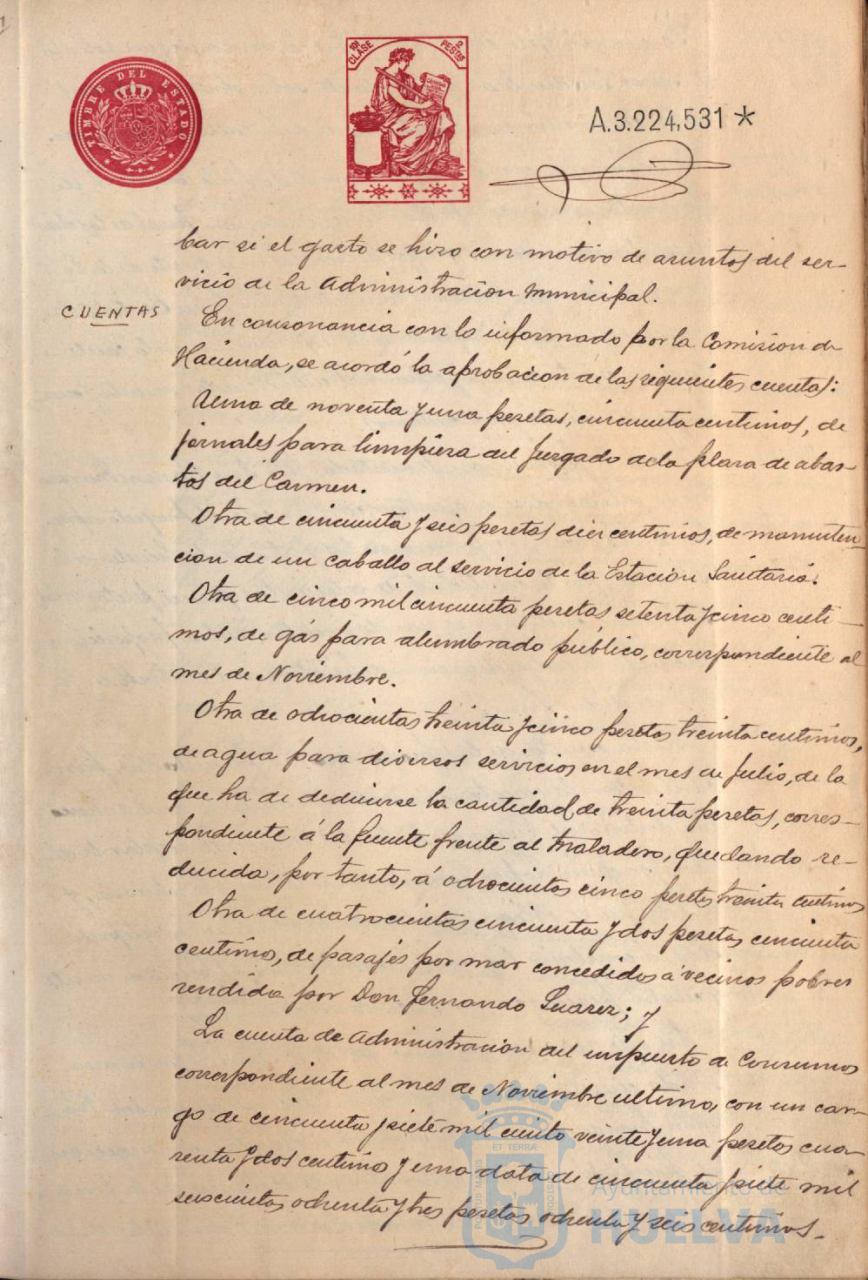 TIMBRE DEL ESTADO
10ª CLASE
2 PESTAS
A.3.224,531 *
bar si el gasto se hizo con motivo de asuntos del ser-
vicio de la Administracion Municipal.
CUENTAS
En consonancia con lo informado por la Comision de
Hacienda, se acordó la aprobacion de las siguientes cuentas:
Una de noventa y una pesetas, cincuenta centimos, de
jornales para limpieza del Juzgado de la plaza de abas-
tos del Carmen.
Otra de cincuenta y seis pesetas diez centimos, de manuten-
cion de un caballo al servicio de la Estación Sanitaria.
Otra de cinco mil cincuenta pesetas setenta y cinco centi-
mos, de gas para alumbrado público, correspondiente al
mes de Noviembre.
Otra de ochocientas treinta y cinco pesetas treinta centimos,
de agua para diversos servicios en el mes de Julio, de la
que ha de deducirse la cantidad de treinta pesetas, corres-
pondiente á la fuente frente al Matadero, quedando re-
ducida, por tanto, á ochocientos cinco pesetas treinta centimos
Otra de cuatrocientas cincuenta y dos pesetas cincuenta
centimo, de pasajes por mar concedidos á vecinos pobres
rendida por Don Fernando Suarez; y
La cuenta de Administracion del impuesto de Consumos
correspondiente al mes de Noviembre ultimo, con un car-
go de cincuenta y siete mil ciento veinte y una pesetas cua-
renta y dos centimo y una data de cincuenta y siete mil
seiscientas ochenta y tres pesetas ochenta y seis centimos.
Ayuntamiento de
HUELVA